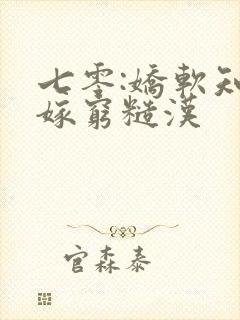 七零:嬌軟知
嫁窮糙漢
官森泰